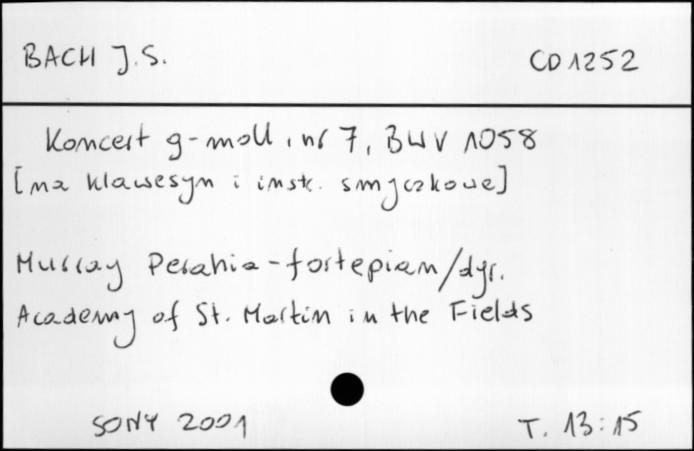 BACH J.S. CD 1252
Koncert g-moll, nr 7, BWV 1058
[na klawesyn i instr. smyczkowe]
Murray Perahia - fortepian/dyr.
Academy of St. Martin in the Fields
SONY 2001 T. 13:15